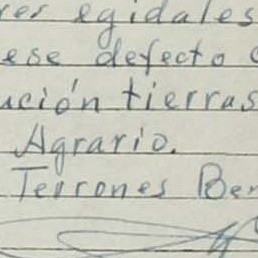 res egidales
ese defecto
ución tierras
Agrario.
Terrones Ber